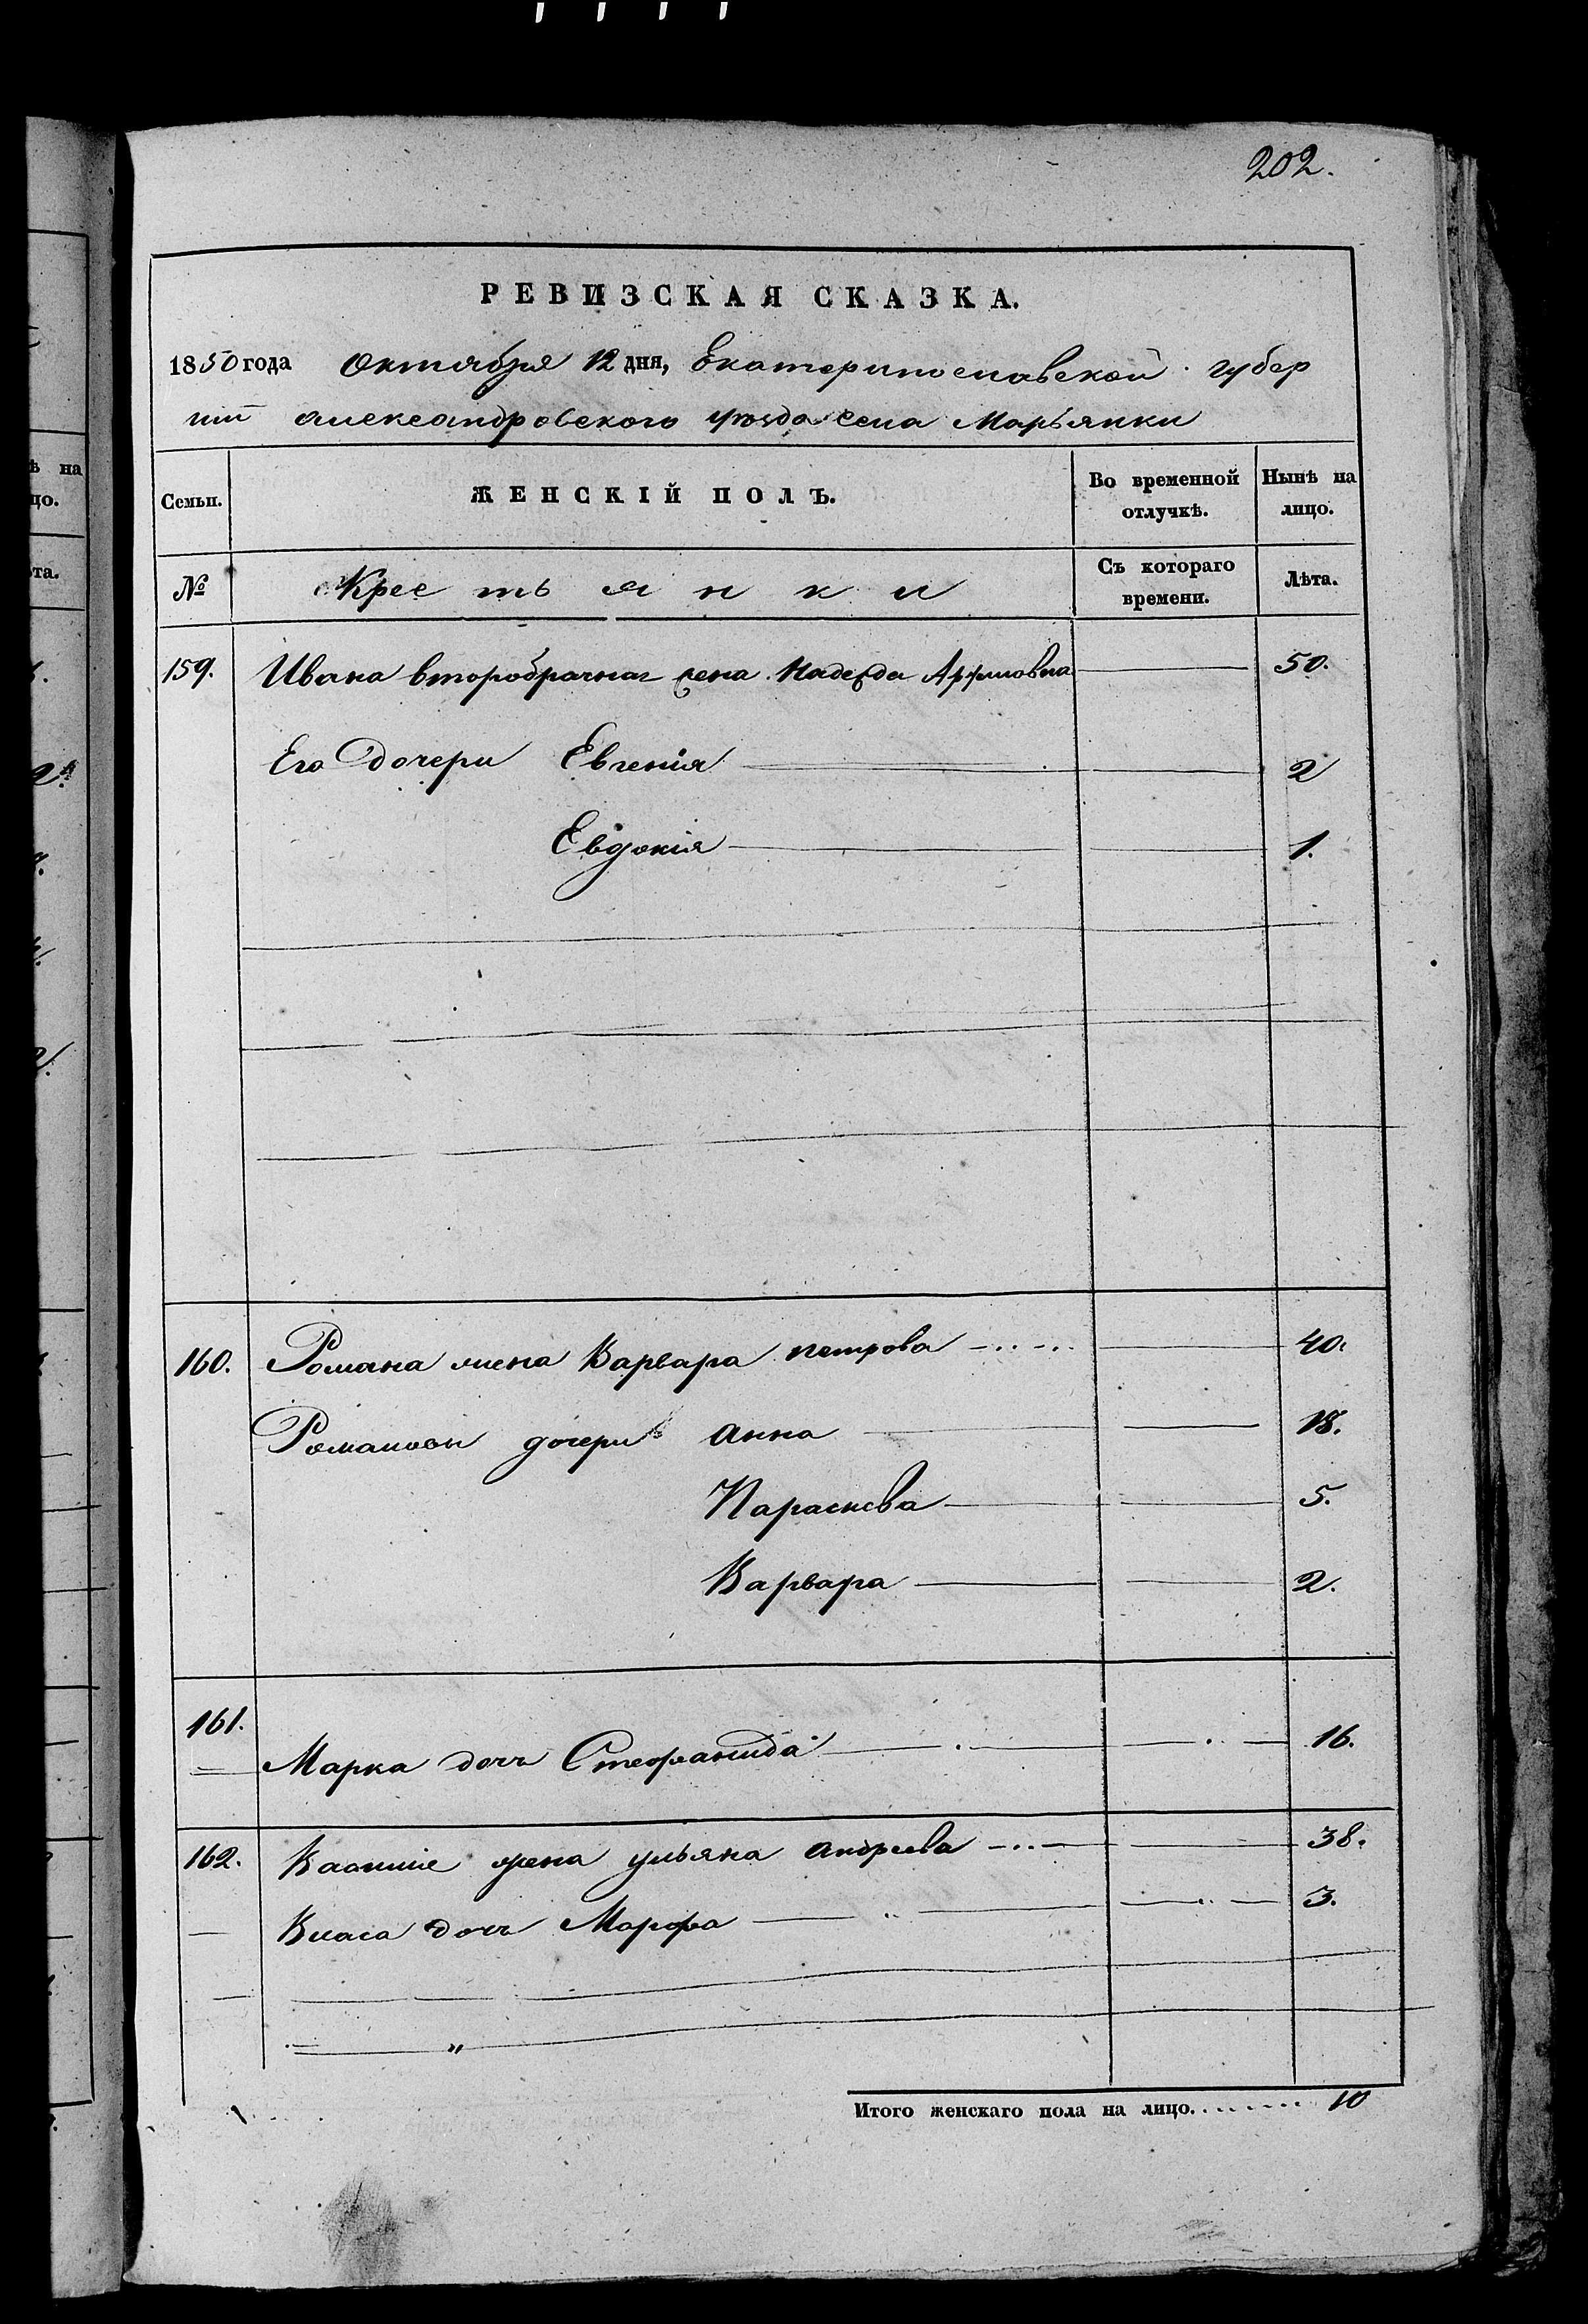 202.
РЕВИЗСКАЯ СКАЗКА.
1850 года Октября 12 дня, Екатеринославской губер
нии Александровского уезда села Марьянки
Семьи. ЖЕНСКІЙ ПОЛЪ. Во временной отлучкѣ. Нынѣ на лицо.
№ Крестьянки Съ котораго времени. Лѣта.
159. Ивана второбрачная жена Надежда 50.
Его дочери Евгенія 2
Евдокія 1.
160. Романа жена Варвара петрова 40.
Романовы дочери Анна 18.
Параскева 5.
Варвара 2.
161. Марка дочь Стефанида 16.
162. жена ульяна Андреева 38.
Власа дочь Марфа 3.
Итого женскаго пола на лицо. 10
ѣ на
цо.
та.